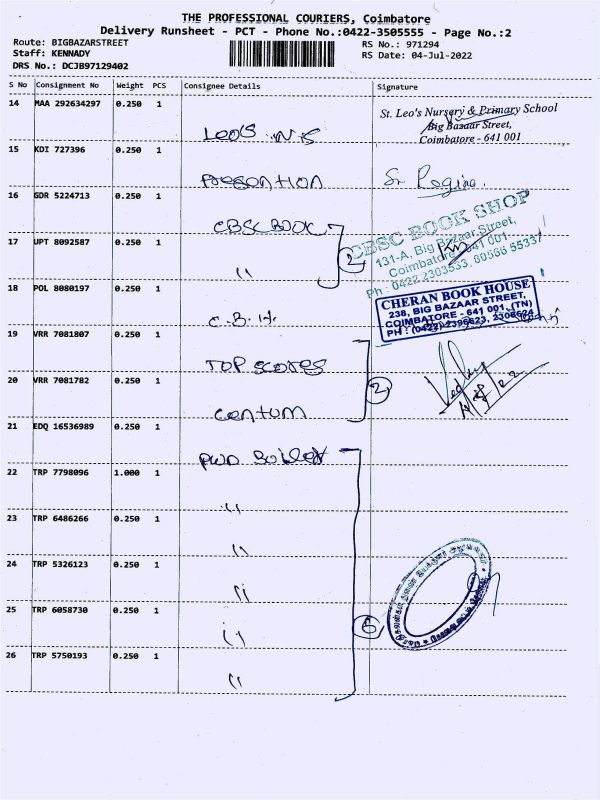 THE PROFESSIONAL COURIERS, Coimbatore
Delivery Runsheet - PCT - Phone No.:0422-3505555 - Page No.:2
Route: BIGBAZARSTREET
RS No.: 971294
Staff: KENNADY
RS Date: 04-Jul-2022
DRS No.: DCJB97129402
S No Consignment No Weight PCS Consignee Details Signature
14 MAA 292634297 0.250 1
St. Leo's Nursery & Primary School
Big Bazaar Street,
Coimbatore - 641 001
Leo's N.S
15 KDI 727396 0.250 1
Sr Regina.
16 GDR 5224713 0.250 1
CBSC BOOK
CBSC BOOK SHOP
131-A, Big Bazaar Street,
Coimbatore - 641 001.
Ph : 0422 2303533, 80566 55337
17 UPT 8092587 0.250 1
"
2
18 POL 8080197 0.250 1
C.B.H.
CHERAN BOOK HOUSE
238, BIG BAZAAR STREET,
COIMBATORE - 641 001. (TN)
PH : (0422) 2396623, 2306624
19 VRR 7081807 0.250 1
TOP SCORES
20 VRR 7081782 0.250 1
2
Centum
21 EDQ 16536989 0.250 1
22 TRP 7798096 1.000 1
"
23 TRP 6486266 0.250 1
"
24 TRP 5326123 0.250 1
"
25 TRP 6058730 0.250 1
"
6
26 TRP 5750193 0.250 1
"